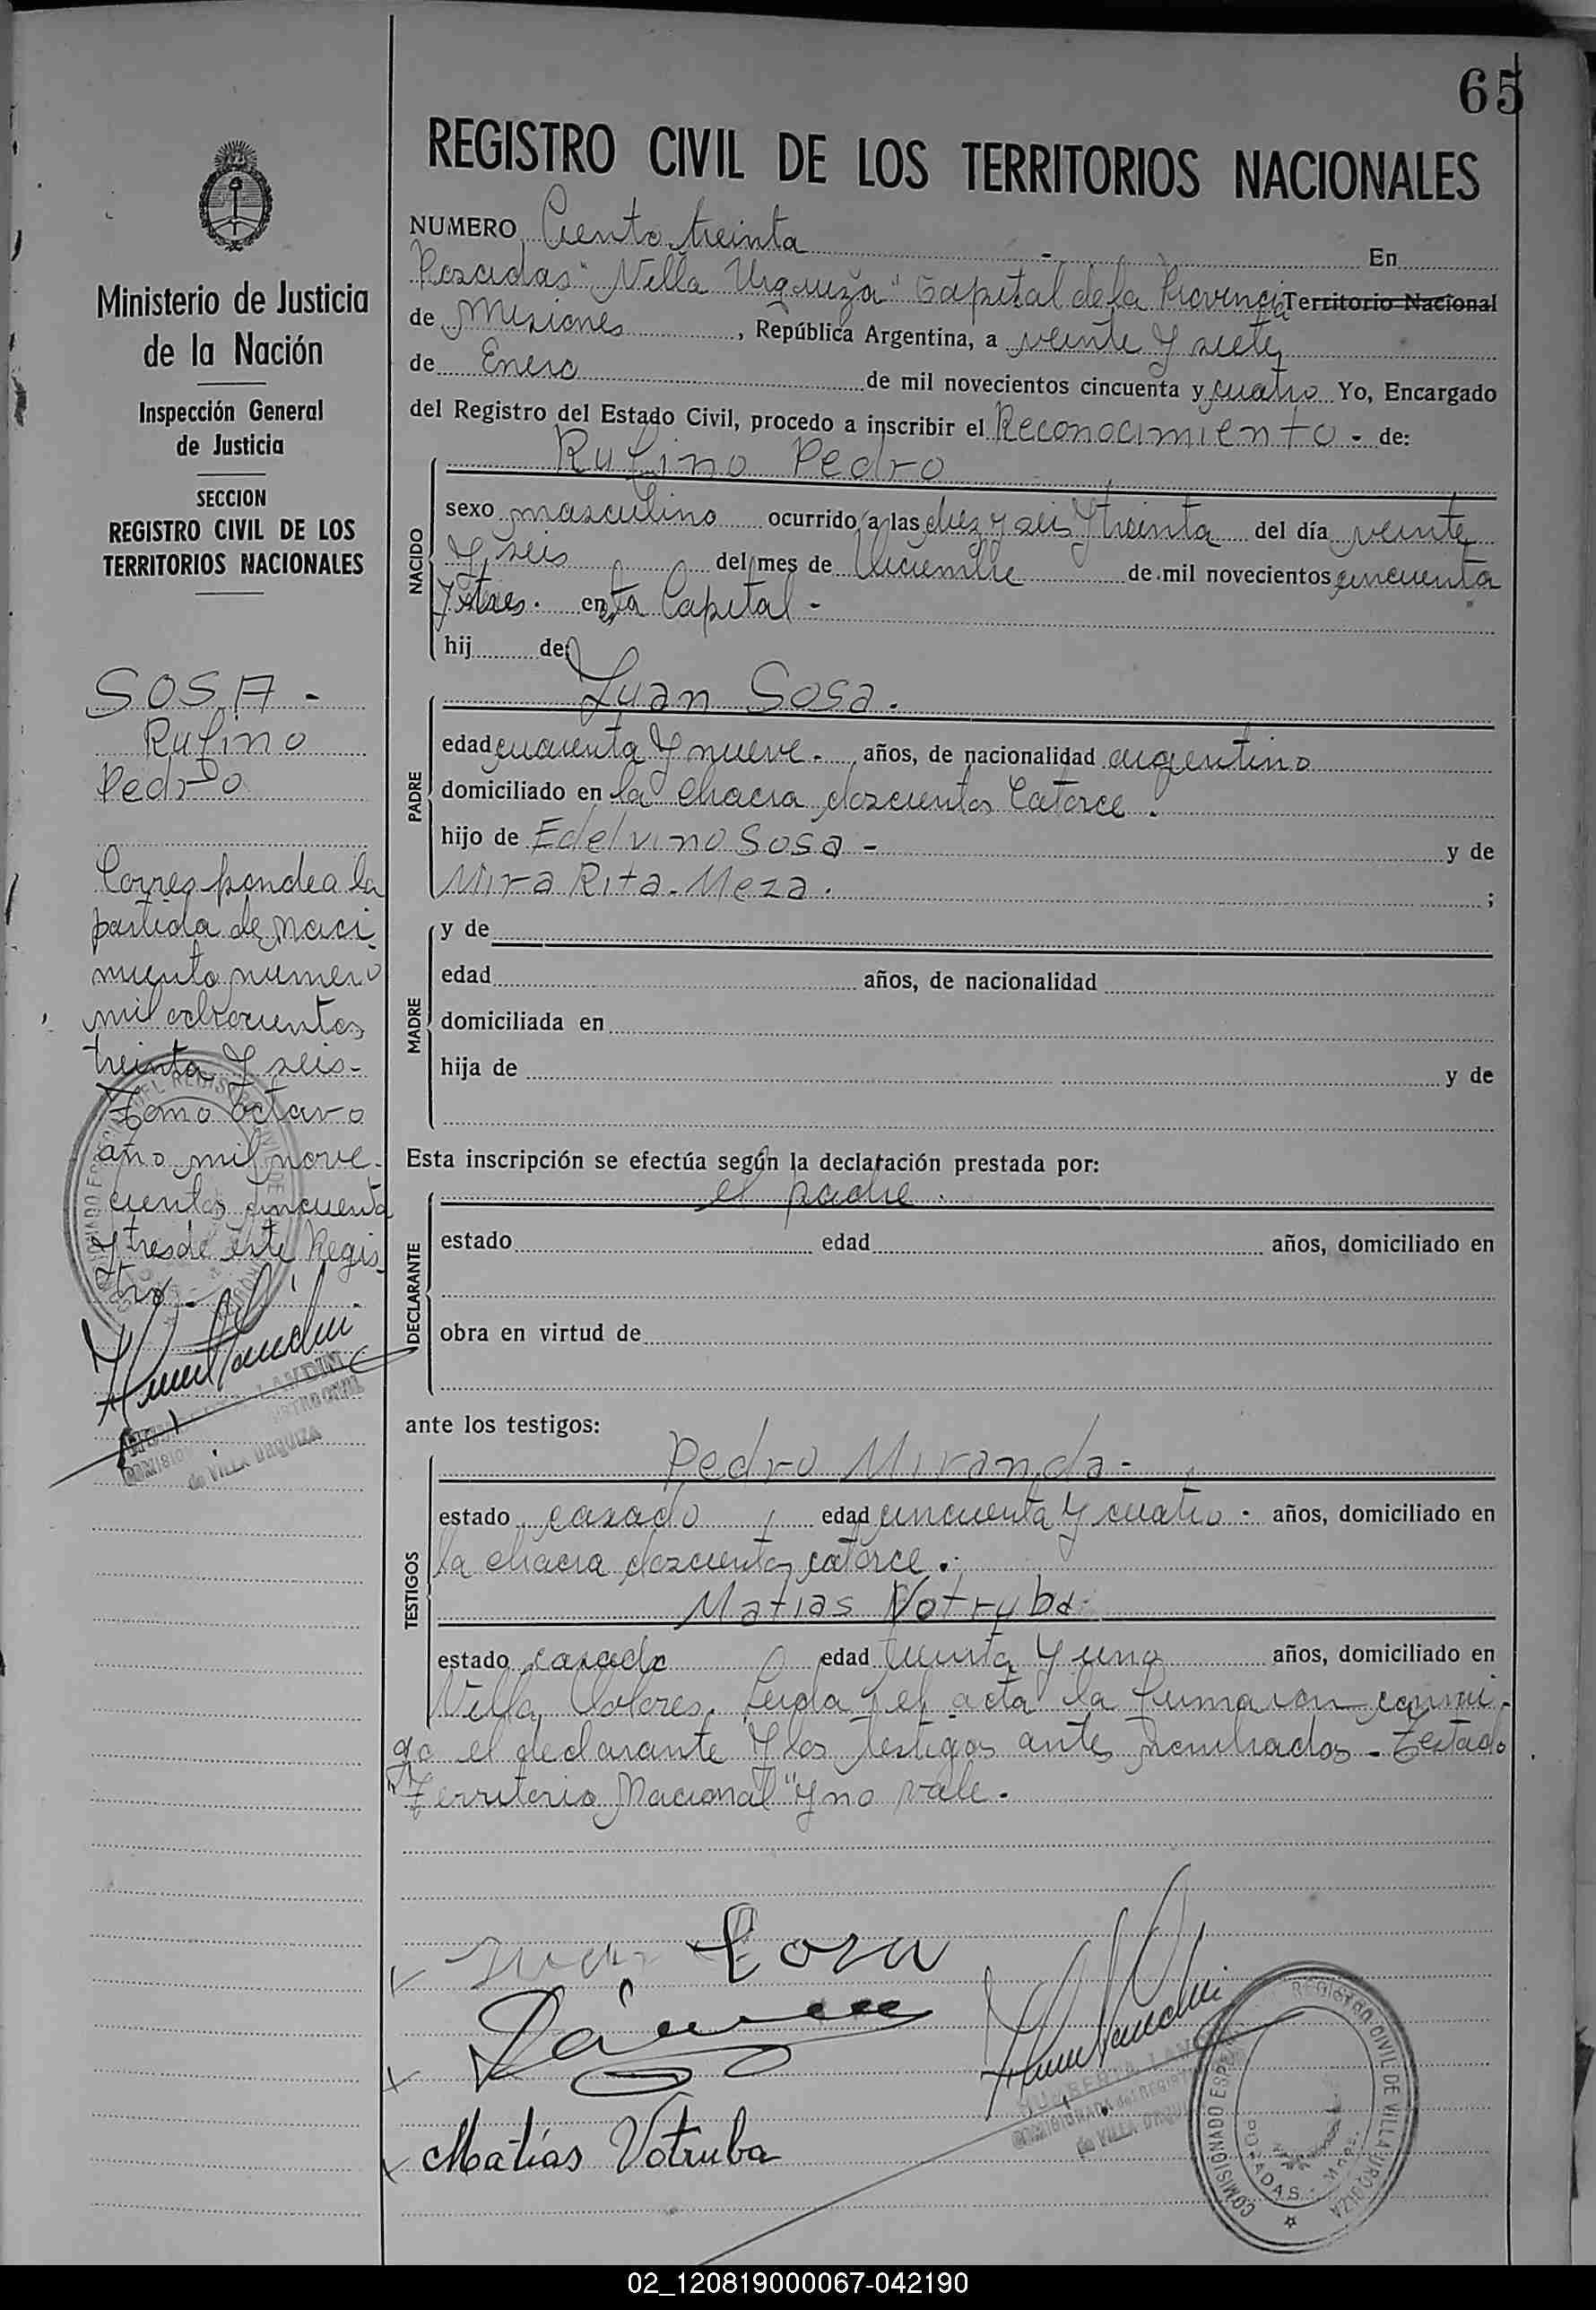 65
REGISTRO CIVIL DE LOS TERRITORIOS NACIONALES
Ministerio de Justicia
de la Nación
Inspección General
de Justicia
SECCION
REGISTRO CIVIL DE LOS
TERRITORIOS NACIONALES
SOSA -
Rufino
Pedro
Corresponde a la
partida de naci
miento numero
mil ochocientos
treinta y seis -
Tomo octavo
año mil nove-
cientos cincuenta
y tres de este Regis
tro -
de VILLA URQUIZA
NUMERO Ciento treinta - En
Posadas "Villa Urquiza" Capital de la Provincia Territorio Nacional
de Misiones, República Argentina, a veinte y siete
de Enero de mil novecientos cincuenta y cuatro Yo, Encargado
del Registro del Estado Civil, procedo a inscribir el Reconocimiento - de:
NACIDO
Rufino Pedro
sexo masculino ocurrido a las diez y seis y treinta del día veinte
y seis del mes de Diciembre de mil novecientos cincuenta
y tres. en esta Capital -
hij de:
PADRE
Juan Sosa.
edad cuarenta y nueve. años, de nacionalidad argentino
domiciliado en la chacra doscientos catorce.
hijo de Edelvino Sosa - y de
Mira Rita Meza. ;
MADRE
y de
edad años, de nacionalidad
domiciliada en
hija de y de
Esta inscripción se efectúa según la declaración prestada por:
DECLARANTE
el padre.
estado edad años, domiciliado en
obra en virtud de
ante los testigos:
TESTIGOS
Pedro Miranda -
estado casado, edad cincuenta y cuatro - años, domiciliado en
la chacra doscientos catorce.
Matias Votruba
estado casado edad treinta y uno años, domiciliado en
Villa Dolores. Leida el acta la firmaron conmi-
go el declarante y los testigos antes nombrados - Testado
"Territorio Nacional" y no vale.
Juan Sosa
Matías Votruba
COMISIONADO REGISTRO CIVIL DE VILLA URQUIZA
02_120819000067-042190